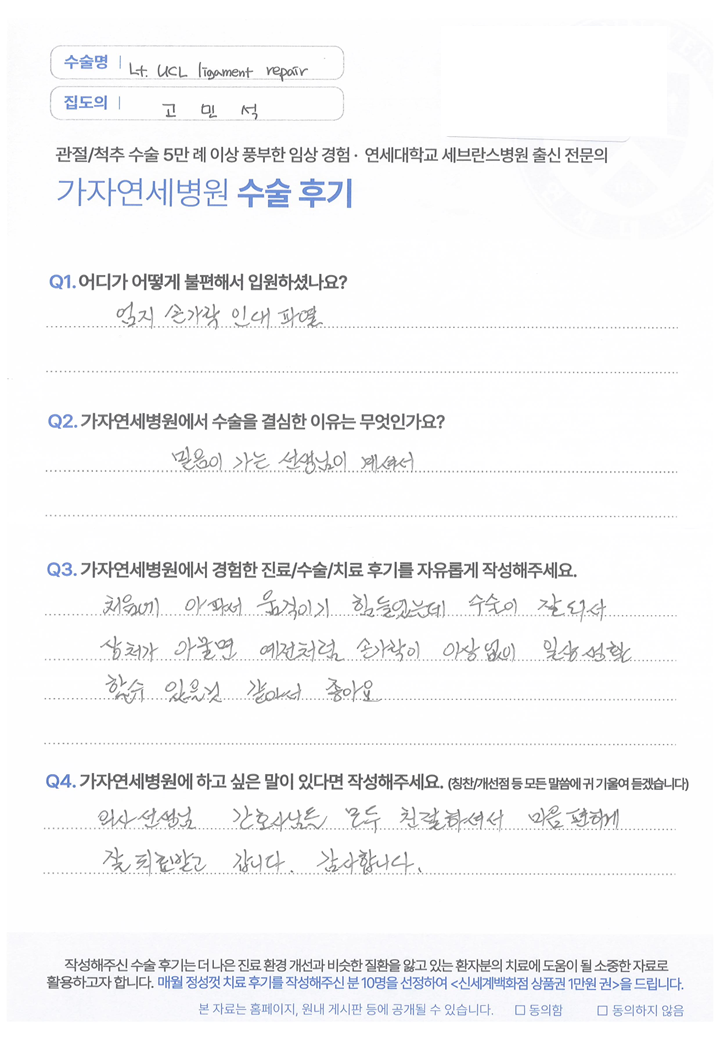 수술명 | Lt. UCL ligament repair
집도의 | 고 민 석
관절/척추 수술 5만 례 이상 풍부한 임상 경험 · 연세대학교 세브란스병원 출신 전문의
가자연세병원 수술 후기
Q1. 어디가 어떻게 불편해서 입원하셨나요?
엄지 손가락 인대 파열
Q2. 가자연세병원에서 수술을 결심한 이유는 무엇인가요?
믿음이 가는 선생님이 계셔서
Q3. 가자연세병원에서 경험한 진료/수술/치료 후기를 자유롭게 작성해주세요.
처음에 아파서 움직이기 힘들었는데 수술이 잘 되서
상처가 아물면 예전처럼 손가락이 이상없이 일상생활
할수 있을것 같아서 좋아요
Q4. 가자연세병원에 하고 싶은 말이 있다면 작성해주세요. (칭찬/개선점 등 모든 말씀에 귀 기울여 듣겠습니다)
의사선생님 간호사님들 모두 친절하셔서 마음 편하게
잘 치료받고 갑니다. 감사합니다.
작성해주신 수술 후기는 더 나은 진료 환경 개선과 비슷한 질환을 앓고 있는 환자분의 치료에 도움이 될 소중한 자료로
활용하고자 합니다. 매월 정성껏 치료 후기를 작성해주신 분 10명을 선정하여 <신세계백화점 상품권 1만원 권>을 드립니다.
본 자료는 홈페이지, 원내 게시판 등에 공개될 수 있습니다. □ 동의함 □ 동의하지 않음